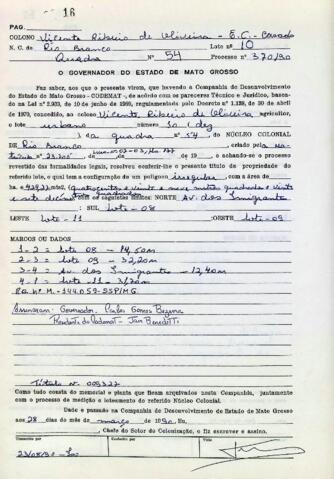 16
PAG.
COLONO Vicente Ribeiro de Oliveira - E.C. Casado
N. C. de Rio Branco Lote nº 10
Quadra Nº 54 Processo nº 370/90
O GOVERNADOR DO ESTADO DE MATO GROSSO
Faz saber, aos que o presente virem, que havendo a Companhia de Desenvolvimento
do Estado do Mato Grosso - CODEMAT -, de acôrdo com os pareceres Técnico e Jurídico, baseado
na Lei nº 2.933, de 10 de junho de 1969, regulamentada pelo Decreto nº 1.138, de 30 de abril
de 1970, concedido, ao colono Vicente Ribeiro de Oliveira agricultor,
o lote urbano nº 10 a (dez
) da quadra nº 54, do NÚCLEO COLONIAL
DE Rio Branco, criado pela
nº 23.205 de de de 19 , e achando-se o processo
revestido das formalidades legais, resolveu conferir-lhe o presente título de propriedade do
referido lote, o qual tem a configuração de um polígono irregular, com a área de
429,27 mts2, (quatrocentos e vinte e nove metros quadrados e vinte
e sete decímetros quadrados com os seguintes limites: NORTE Av. dos Imigrantes
; SUL Lote - 08
LESTE Lote - 11 ; OESTE Lote - 09
MARCOS OU DADOS
1 - 2 = lote 08 - 14,50m
2 - 3 = lote 09 - 32,20m
3 - 4 = Av. dos Imigrantes - 12,40m
4 - 1 = lote - 11 -
M. - 144.059 - SSP/MG
Assinaram: Governador: Carlos Gomes Bezerra
Presidente da Codemat -
Título nº 009327
Como tudo consta do memorial e planta que ficam arquivados nesta Companhia, juntamente
com o processo de medição e loteamento do referido Núcleo Colonial.
Dado e passado na Companhia de Desenvolvimento do Estado de Mato Grosso
aos 28 dias do mês de março de 1990, Eu,
, Chefe do Setor de Colonização, o fiz escrever e assino.
23/08/90